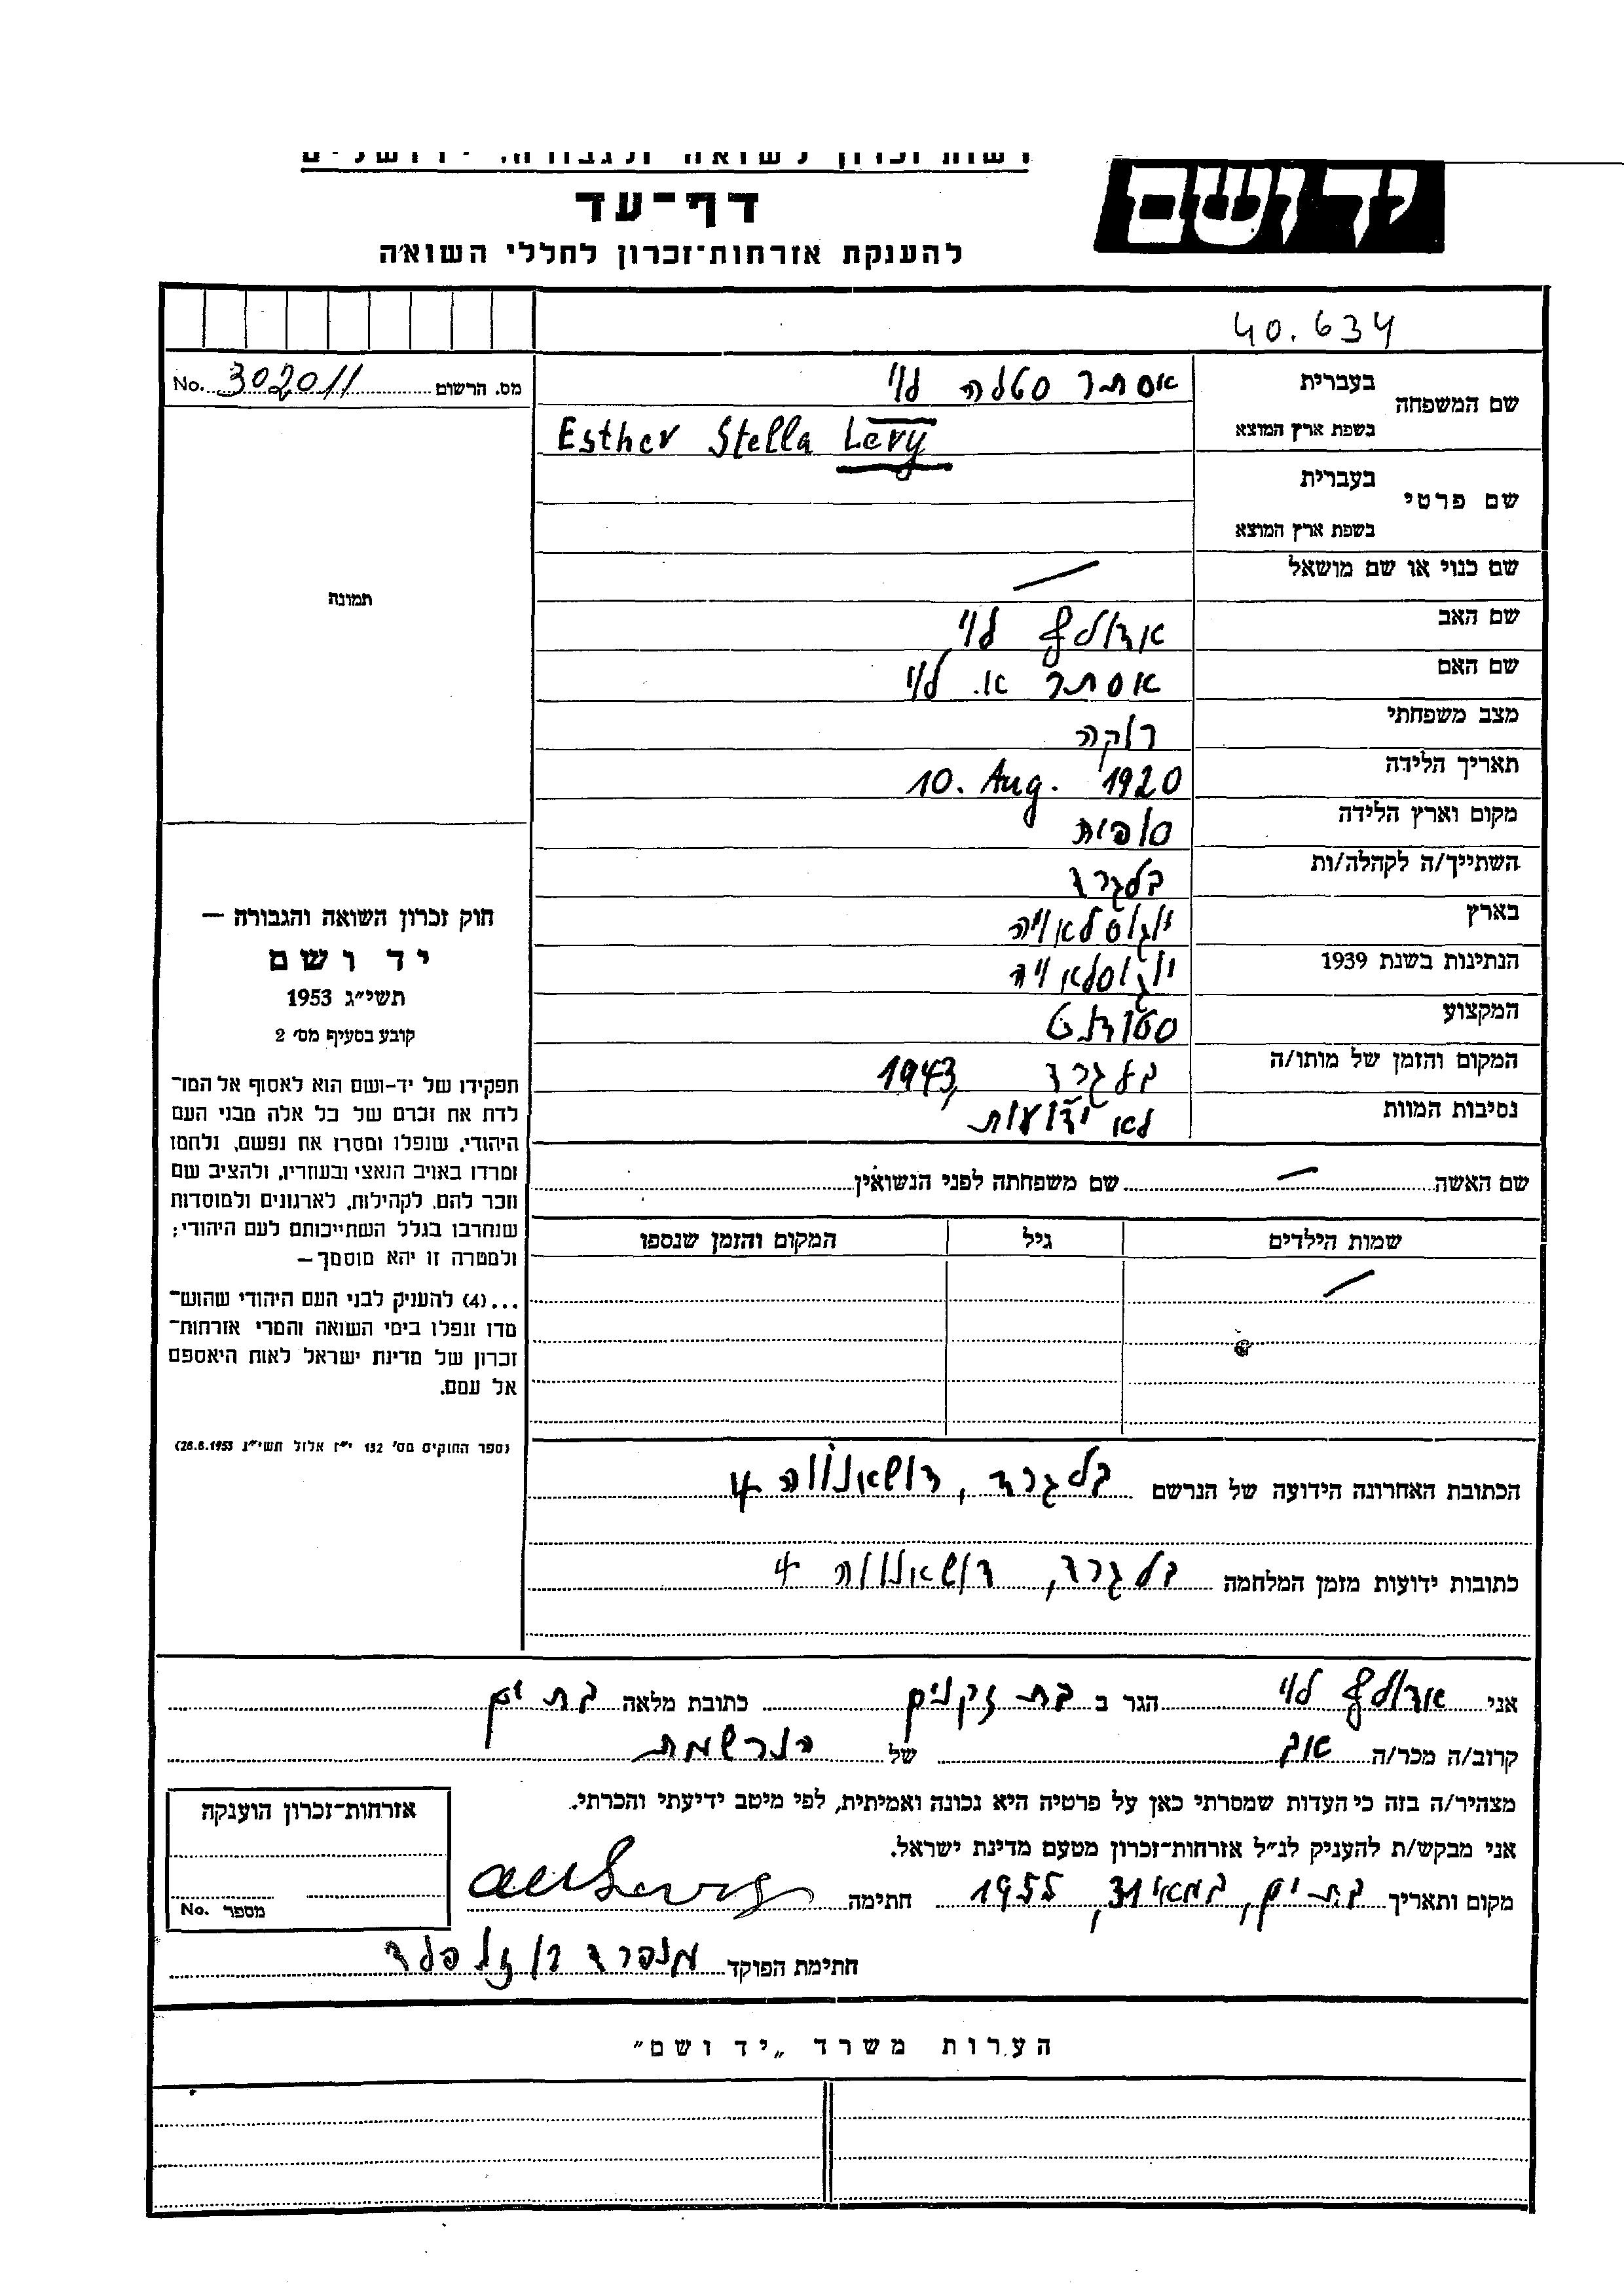 רשות זכרון לשואה ולגבורה, ירושלים
יד ושם
דף־עד
להענקת אזרחות־זכרון לחללי השואה
40.634
מס. הרשום 302011 No.
שם המשפחה
בעברית
אסתר סטלה לוי
בשפת ארץ המוצא
Esther Stella Levy
שם פרטי
בעברית
בשפת ארץ המוצא
שם כנוי או שם מושאל —
שם האב אדולף לוי
שם האם אסתר א. לוי
מצב משפחתי רוקה
תאריך הלידה 10. Aug. 1920
מקום וארץ הלידה סופית
השתייך/ה לקהלה/ות בלגרד
בארץ יוגוסלאויה
הנתינות בשנת 1939 יוגוסלאויה
המקצוע סטודנט
המקום והזמן של מותו/ה בלגרד 1943
נסיבות המוות לא ידועות
שם האשה — שם משפחתה לפני הנשואין
שמות הילדים גיל המקום והזמן שנספו
—
הכתובת האחרונה הידועה של הנרשם בלגרד, דושאנווה 4
כתובות ידועות מזמן המלחמה בלגרד, דושאנווה 4
תמונה
חוק זכרון השואה והגבורה —
יד ושם
תשי״ג 1953
קובע בסעיף מס׳ 2
תפקידו של יד-ושם הוא לאסוף אל המו־
לדת את זכרם של כל אלה מבני העם
היהודי, שנפלו ומסרו את נפשם, נלחמו
ומרדו באויב הנאצי ובעוזריו, ולהציב שם
וזכר להם, לקהילות, לארגונים ולמוסדות
שנחרבו בגלל השתייכותם לעם היהודי;
ולמטרה זו יהא מוסמך—
...(4) להעניק לבני העם היהודי שהוש־
מדו ונפלו בימי השואה והמרי אזרחות־
זכרון של מדינת ישראל לאות היאספם
אל עמם.
(ספר החוקים מס׳ 132 י״ז אלול תשי״ג 28.8.1953)
אני אדולף לוי הגר ב בת זקנים כתובת מלאה בת ים
קרוב/ה מכר/ה אב של הנרשמת
מצהיר/ה בזה כי העדות שמסרתי כאן על פרטיה היא נכונה ואמיתית, לפי מיטב ידיעתי והכרתי.
אני מבקש/ת להעניק לנ״ל אזרחות־זכרון מטעם מדינת ישראל.
מקום ותאריך בת ים, במאי 31, 1955 חתימה
חתימת הפוקד מנפרד רוזלפלד
אזרחות־זכרון הוענקה
מספר No.
הערות משרד „יד ושם״